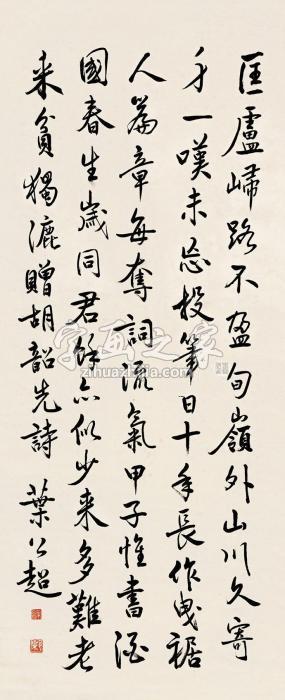 匡廬歸路不盈旬嶺外山川久寄
身一嘆未忘投筆日十年長作曳裾
人篇章每奪詞流氣甲子惟書酒
國春生歲同君餘亦似少來多難老
来貧獨漉贈胡韶先詩 葉公超
字画之家
zihuazhijia.com